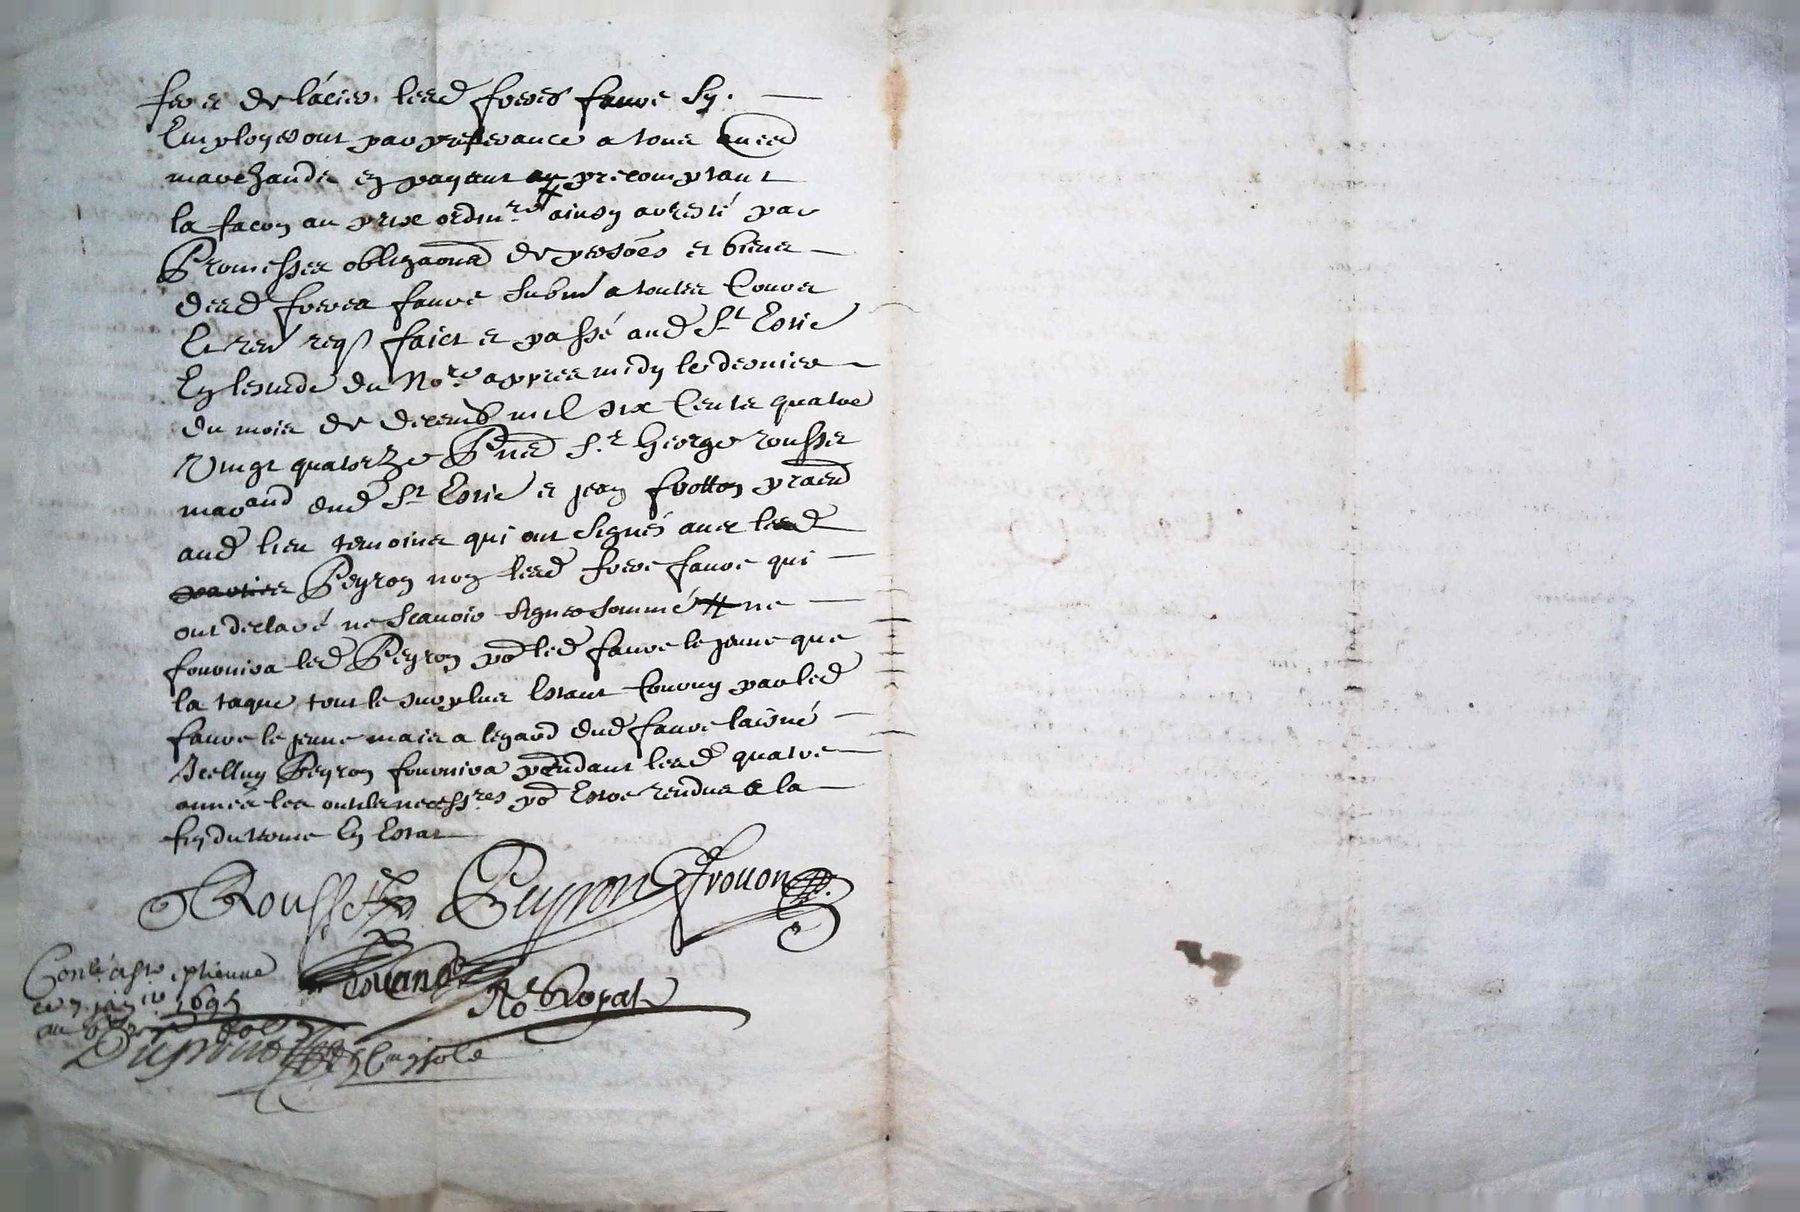 fer et de lacier, lesd freres faure sy.
Employeront par preferance a tous au ced
marchands en payant au precomptant
la facon au prix ordin.re ainsy arresté par
Promesses obliga[ti]ons de persoes et biens
desd freres faure subm a toutes Cours
Et ren req faict et passé aud St Estie
En lestude du No.re appres midy le dernier
du mois de decemb mil six Cents quatre
Vingt quatorze Pnts S.r George rousset
marand dud St Estie et jean frotton praed
aud lieu temoins qui ont signés avec lesd
Peyron non lesd frere faure qui
ont declaré ne scavoir signer sommé ne
fournira led Peyron po led faure le jeune que
la taque, tout le surplus Estant Fourny par led
faure le jeune mais a legard dud faure laisné
Icelluy Peyron fournira pendant lesd quatre
années les outils necess.res po Estre rendus a la
fin du terme En Estat
Rousset Peyron Frouon
No Ropal
Con.lé a St estienne
ce 7 janier 1695